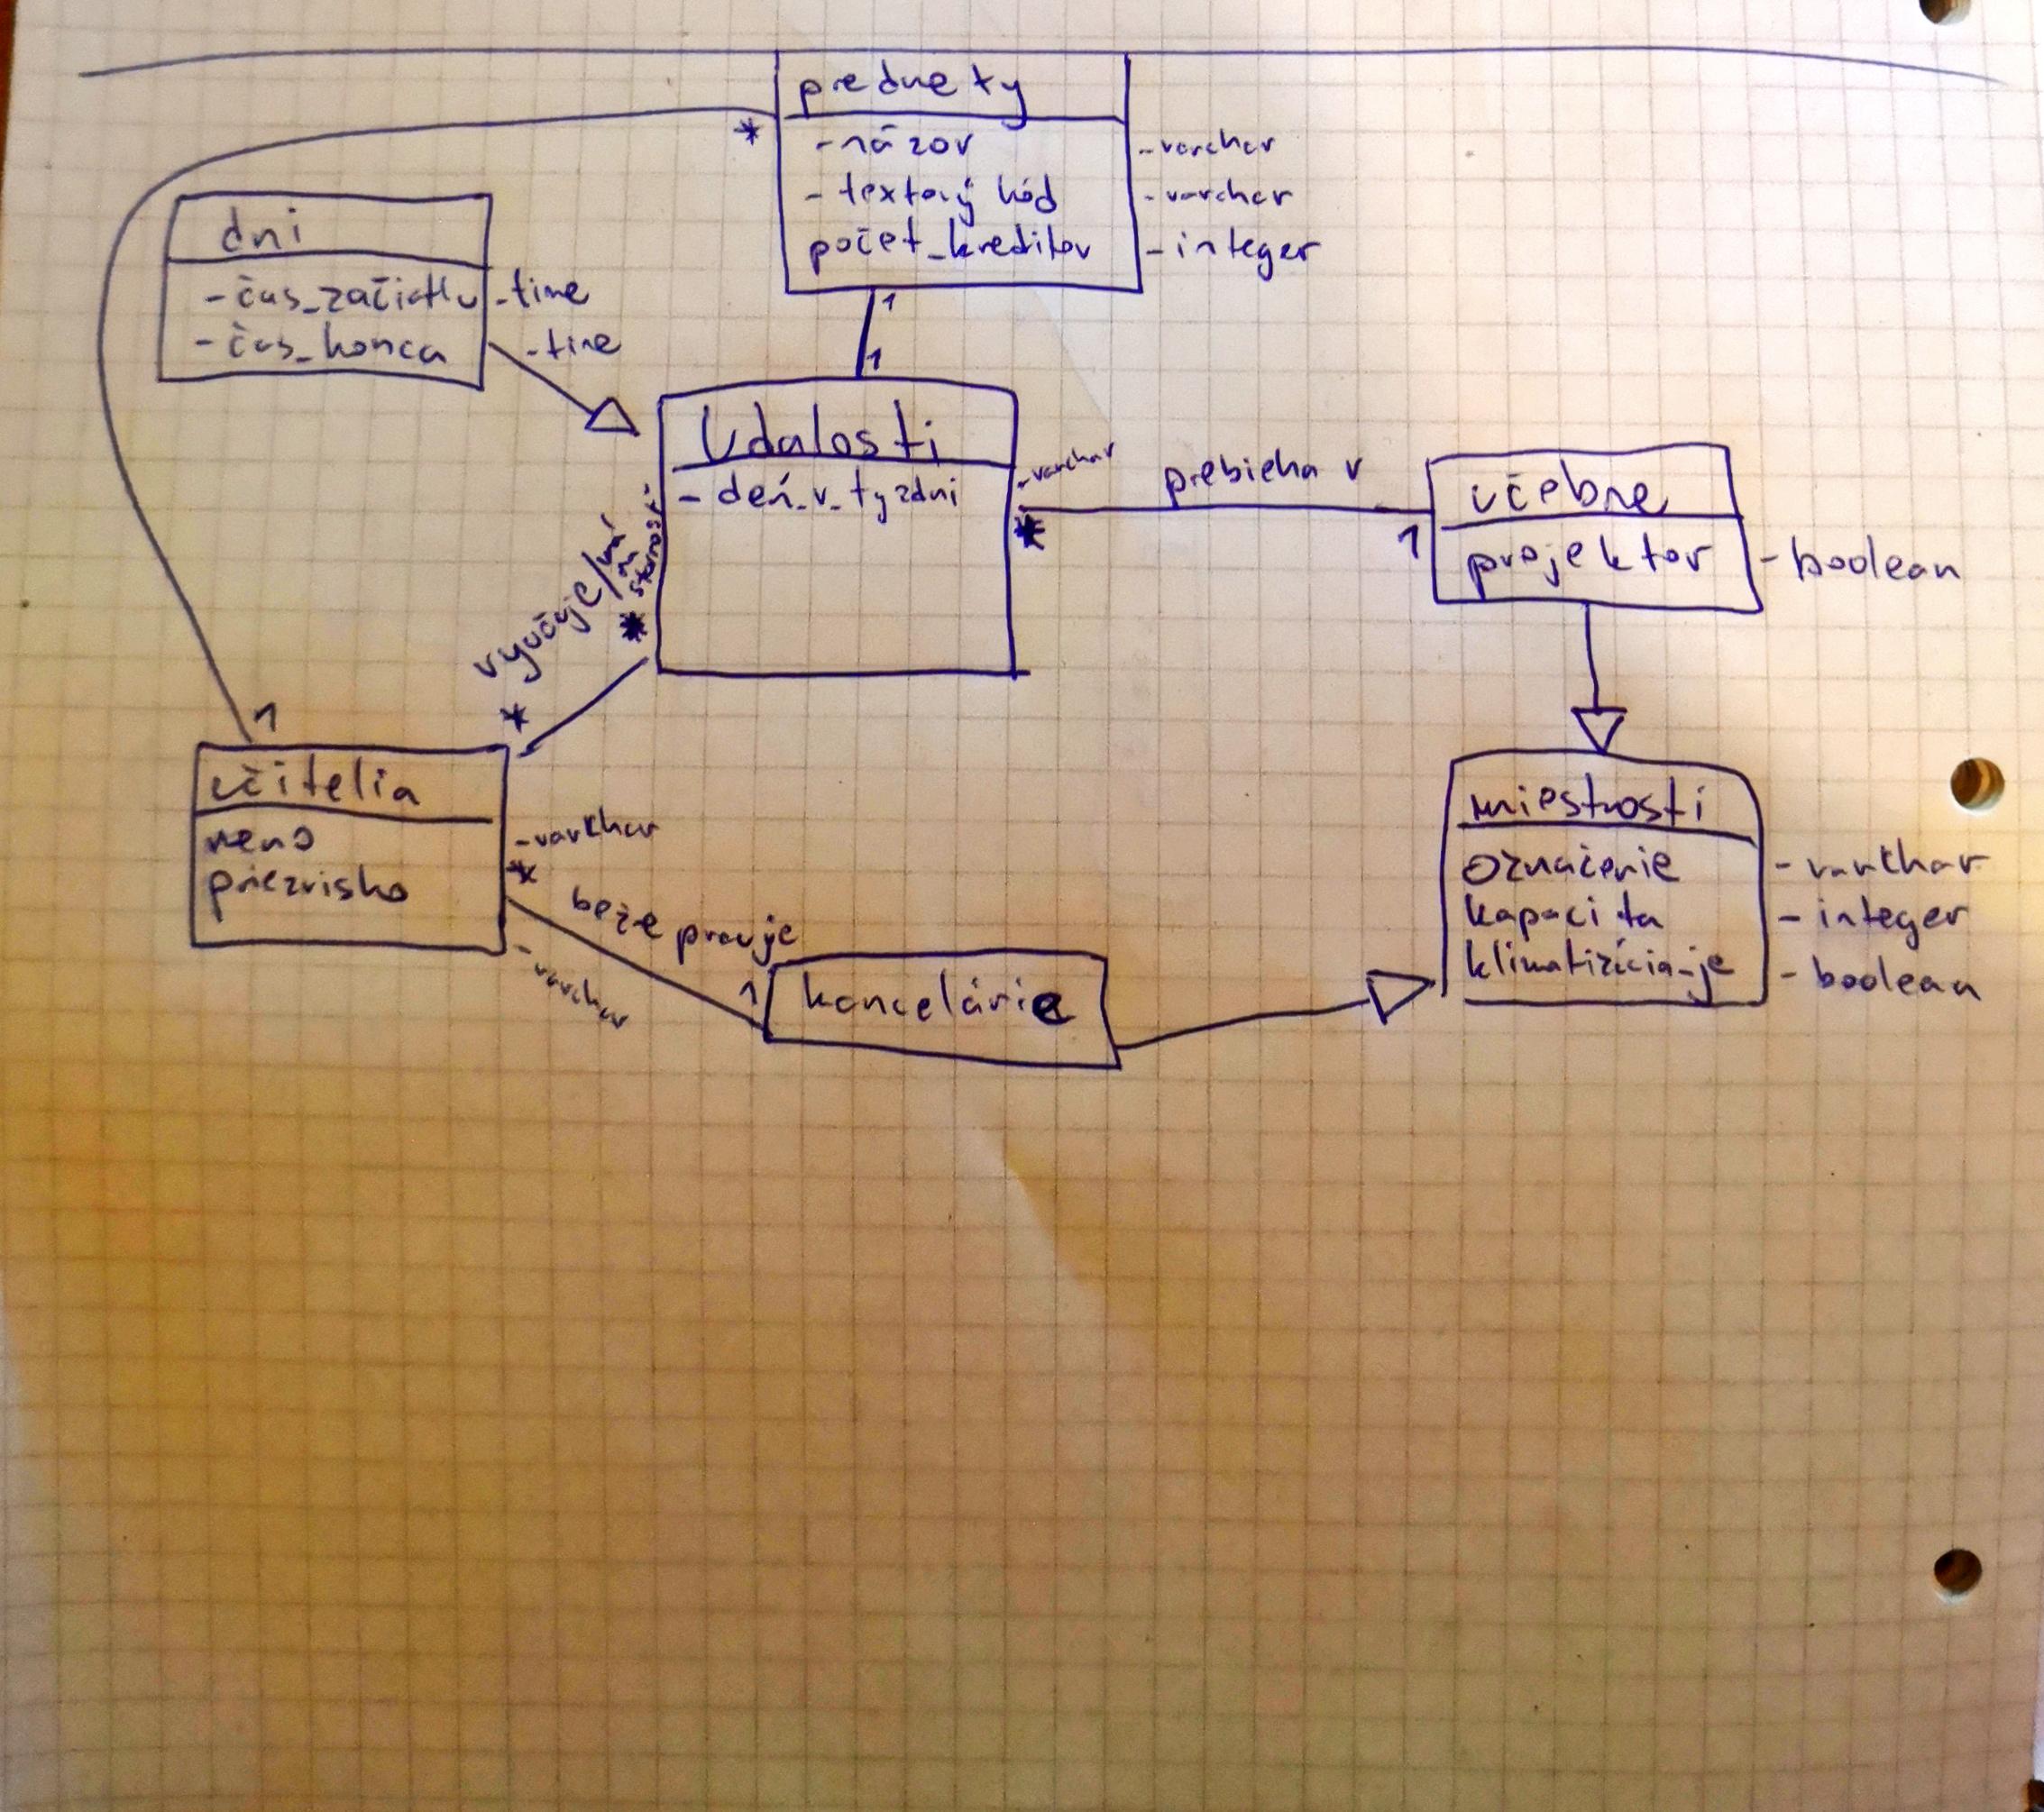 predmety
*
- názov
- varchar
- textový kód
- varchar
počet_kreditov
- integer
dni
- čas_začiatku
- time
- čas_konca
- time
1
1
Udalosti
- deň_v_tyzdni
- varchar
prebieha v
*
1
učebne
projektor
- boolean
vyučuje/má na starosti
*
*
1
učitelia
meno
- varkhar
priezvisko
- varchar
*
beže pracuje
1
kancelárie
miestnosti
označenie
- varkhar
kapacita
- integer
klimatizácia_je
- boolean